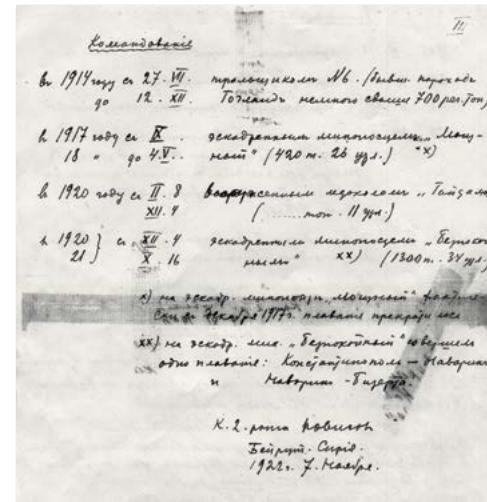 III
Командованіе
въ 1914 году съ 27. VII. тральщикомъ №6. /бывш. пароходъ
до 12. XII. Готландъ немного свыше 700 рег. тон/
въ 1917 году съ IX. эскадреннымъ миноносцемъ „Мощ-
18 „ до 4.V. ный" (420 т. 26 узл.) x)
въ 1920 году съ II. 8 вооруженнымъ ледоколомъ „Гайдамакъ"
XII. 4 (.......тон. 11 узл.)
въ 1920 } съ XII. 4 эскадреннымъ миноносцемъ „Безпокой-
21 } X. 16 ный" xx) (1300 т. 34 узл.)
x) на эскадр. миноносцѣ „Мощный" фактиче-
ски съ Декабря 1917 г. плаваніе прекратилось
xx) на эскадр. мин. „Безпокойный" совершилъ
одно плаваніе: Константинополь — Наваринъ
и Наваринъ - Бизерта.
К. 2. ранга
Бейрутъ. Сирія.
1922 г. 7. Ноября.